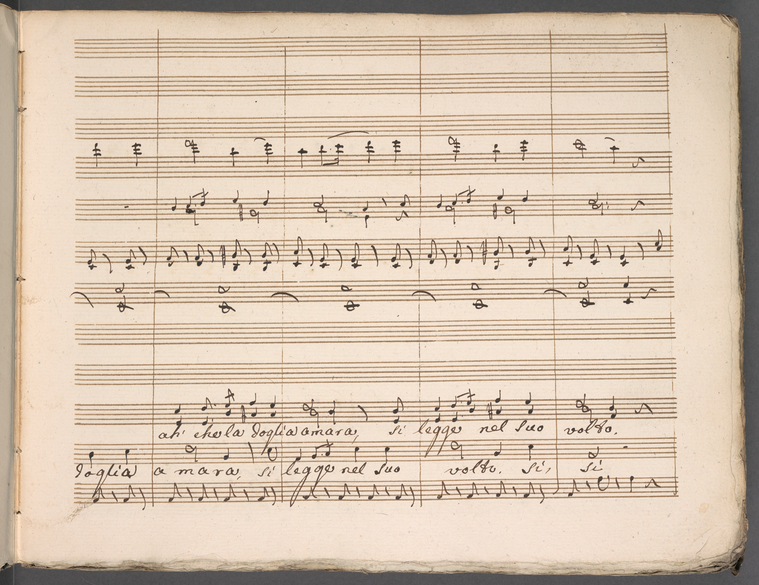 ah' che la doglia amara, si legge nel suo volto.
doglia amara, si legge nel suo volto. si, si